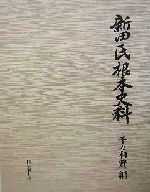 新田氏根本史料
千々和實 編